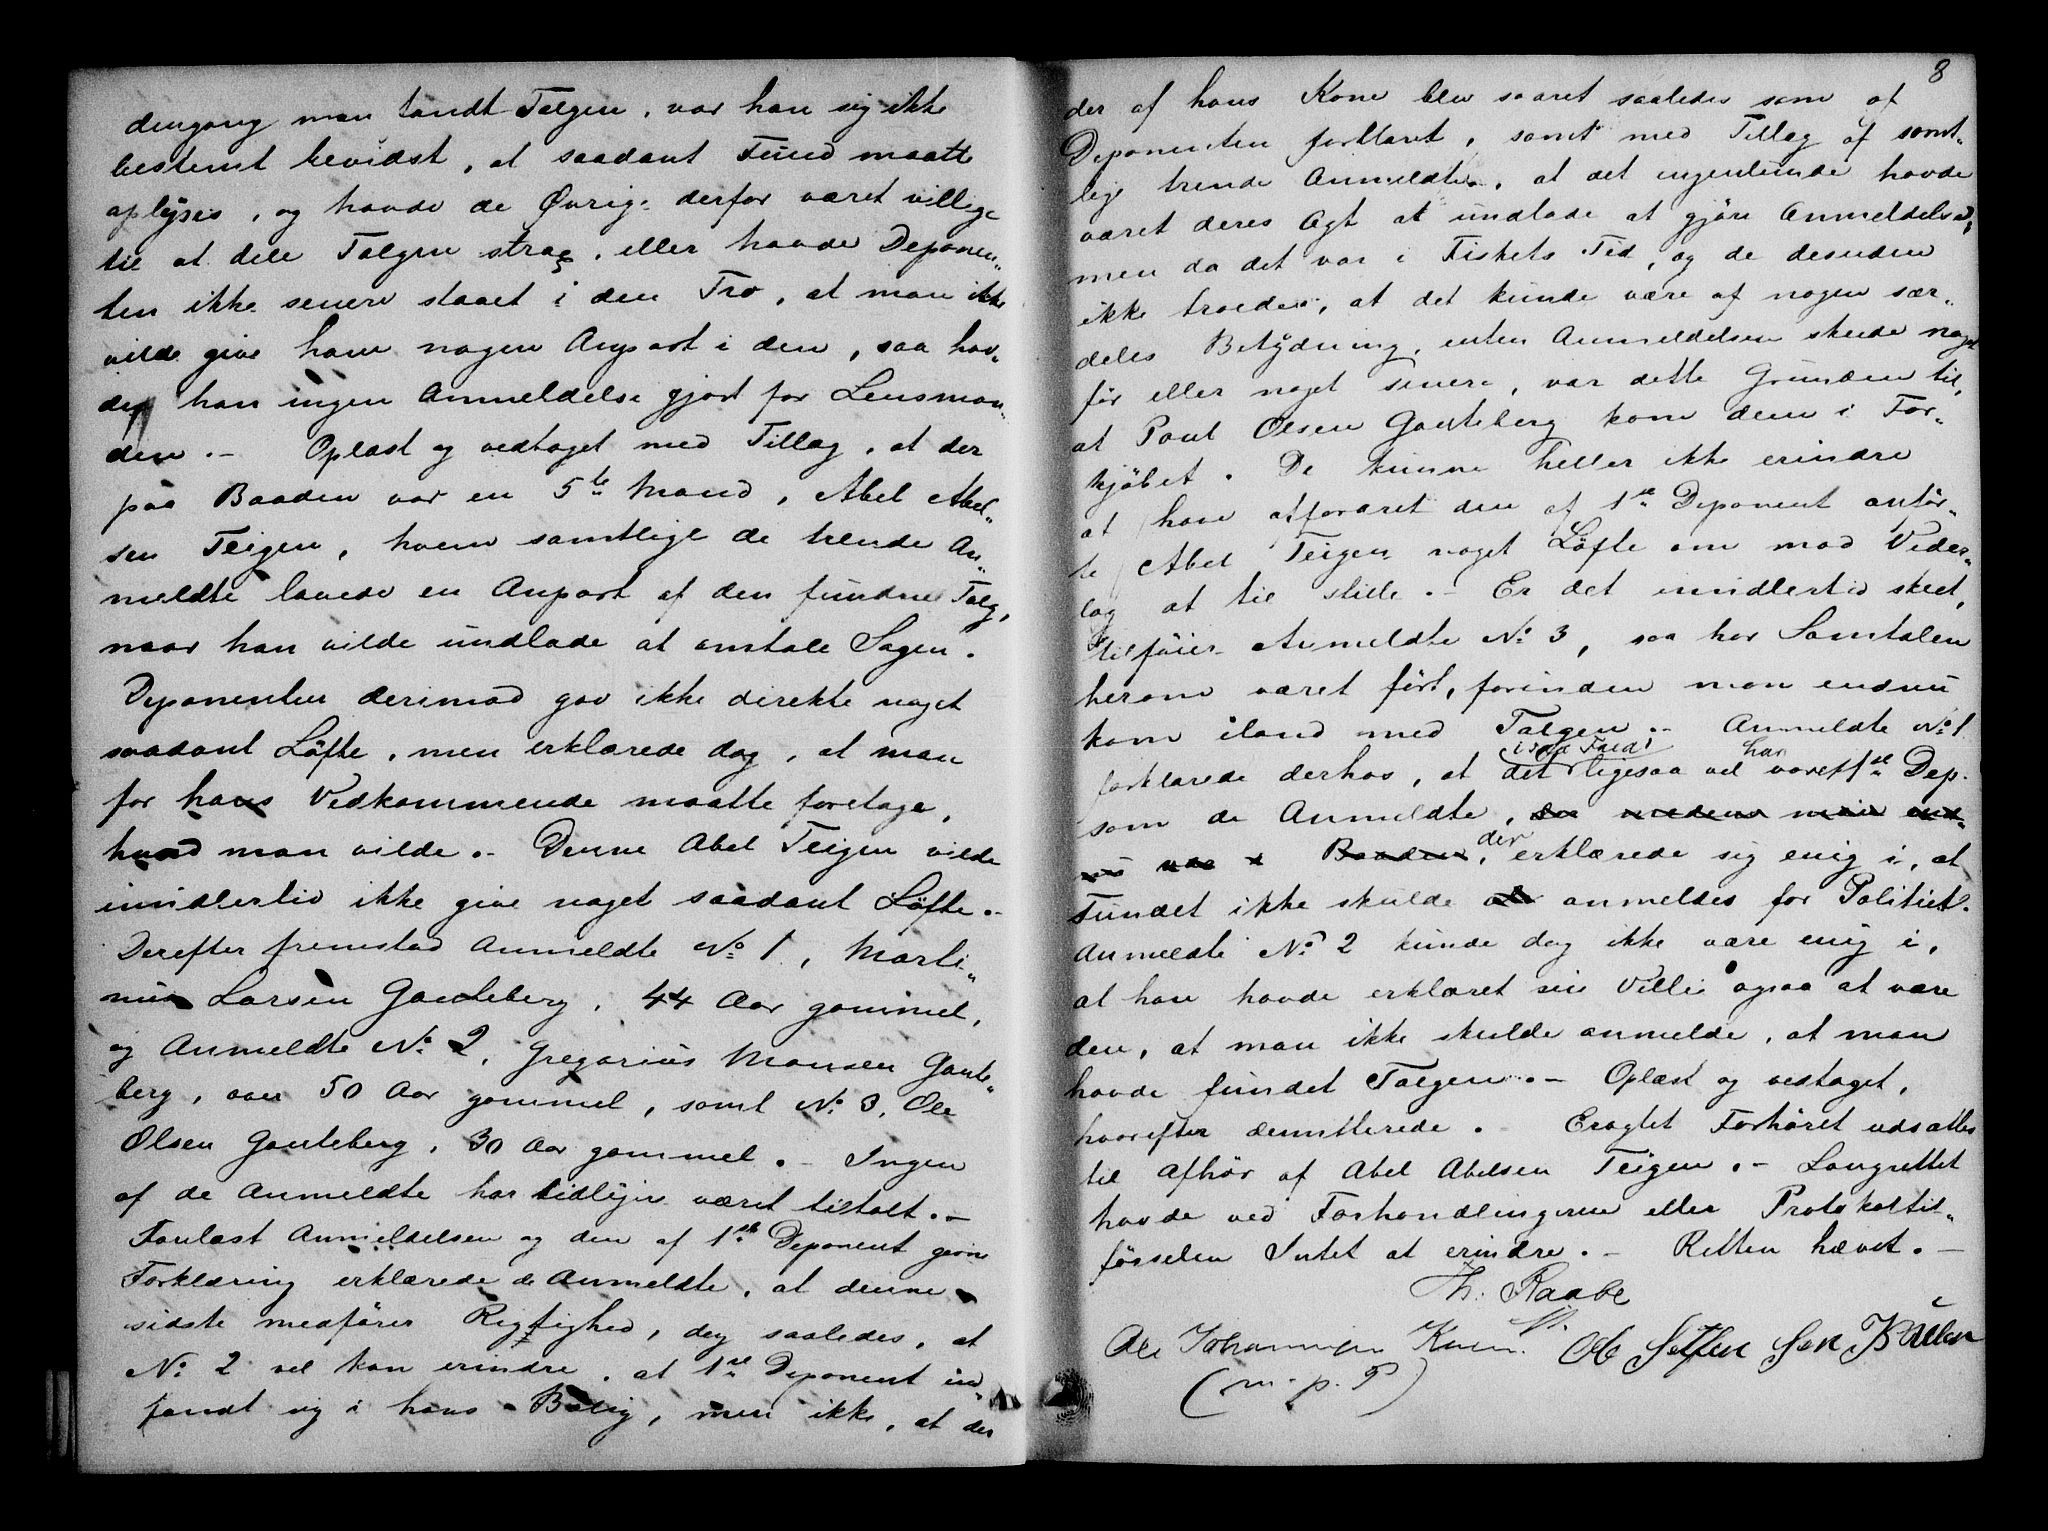 dengang man fandt Talgen, var han sig ikke
bestemt bevidst, at saadant Fund maatte
oplyses, og havde de Øvrige derfor været villige
til at dele Talgen strax, eller havde Deponen„
ten ikke senere staaet i den Tro, at man ikke
vilde give ham nogen Anpart i den, saa hav„
de han ingen Anmeldelse gjort for Lensman„
den. – Oplæst og vedtaget med Tillæg, at der
paa Baaden var en 5te Mand, Abel Abel„
sen Teigen, hvem samtlige de trende An„
meldte lovede en Anpart af den fundne Talg,
naar han vilde undlade at omtale Sagen.
Deponenten derimod gav ikke direkte noget
saadant Løfte, men erklærede dog, at man
for hans Vedkommende maatte foretage,
hvad man vilde. – Denne Abel Teigen vilde
imidlertid ikke give noget saadant Løfte. –
Derefter fremstod Anmeldte No 1, Marti„
nus Larsen Gauteberg, 44 Aar gammel,
og Anmeldte No 2, Gregorius Monsen Gaute„
berg, over 50 Aar gammel, samt No 3, Ole
Olsen Gauteberg, 30 Aar gammel. – Ingen
af de Anmeldte har tidligere været tiltalt. –
Forelæst Anmeldelsen og den af 1ste Deponent givne
Forklaring erklærede de Anmeldte, at denne
sidste medfører Rigtighed, dog saaledes, at
No 2 vel kan erindre, at 1ste Deponent ind„
fandt sig i hans Bolig, men ikke, at der
8
der af hans Kone blev svaret saaledes som af
Deponenten forklaret, samt med Tillæg af samt„
lige trende Anmeldte, at det ingenlunde havde
været deres Agt at undlade at gjøre Anmeldelse,
men da det var i Fiskets Tid, og de desuden
ikke troede, at det kunde være af nogen sær„
deles Betydning, enten Anmeldelsen skede noget
før eller noget senere, var dette Grunden til,
at Poul Olsen Gauteberg kom dem i For„
kjøbet. De kunne heller ikke erindre
at have afforaret den af 1ste Deponent anfør„
te Abel Teigen noget Løfte om mod Veder„
lag at tie stille. – Er det imidlertid skeet,
tilføier Anmeldte No 3, saa har Samtalen
herom været ført, forinden man endnu
kom iland med Talgen. – Anmeldte No 1
forklarede derhos, at det i saa Fald ligesaa vel har været 1ste Dep.
som de Anmeldte, da medens man end„
nu var i Baaden, der erklærede sig enig i, at
Fundet ikke skulde anmeldes for Politiet.
Anmeldte No 2 kunde dog ikke være enig i,
at han havde erklæret sin Villie ogsaa at være
den, at man ikke skulde anmelde, at man
havde fundet Talgen. – Oplæst og vedtaget,
hvorefter demitterede. – Eragtet Forhøret udsættes
til Afhør af Abel Abelsen Teigen. – Laugrettet
havde ved Forhandlingerne eller Protokoltil„
førselen Intet at erindre. – Retten hævet. –
Th. Raabe
Ole Johannesen
(m. p. P)